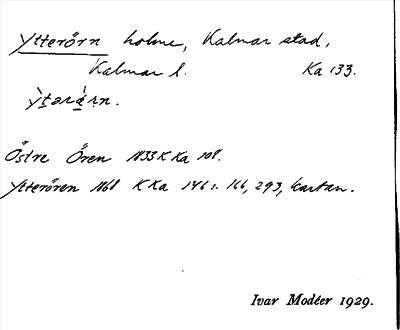 Ytterörn holme, Kalmar stad,
Kalmar l. Ka 133.
Östre Ören 1833 K Ka 108.
Ytterören 1868 K Ka 146 s. 166, 293, kartan.
Ivar Modéer 1929.